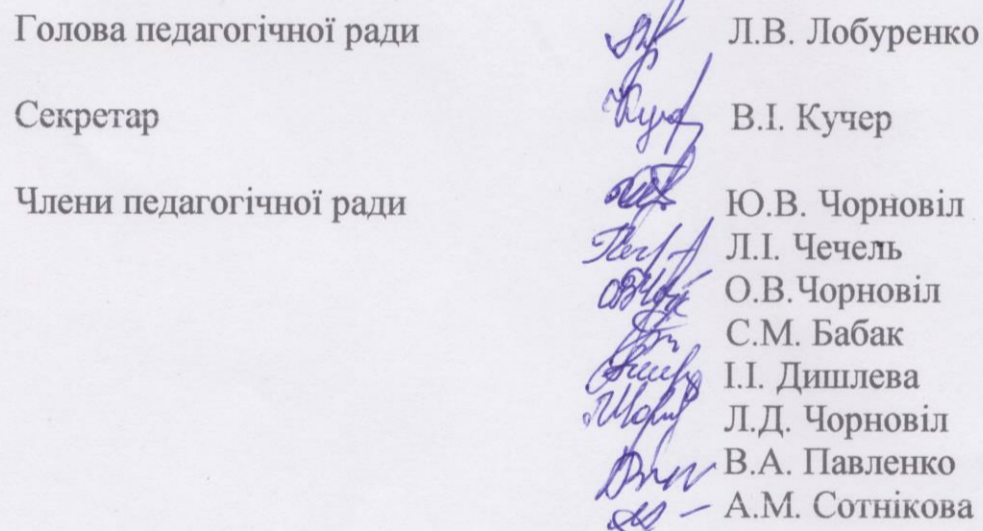 Голова педагогічної ради Л.В. Лобуренко
Секретар В.І. Кучер
Члени педагогічної ради Ю.В. Чорновіл
Л.І. Чечель
О.В.Чорновіл
С.М. Бабак
І.І. Дишлева
Л.Д. Чорновіл
В.А. Павленко
А.М. Сотнікова